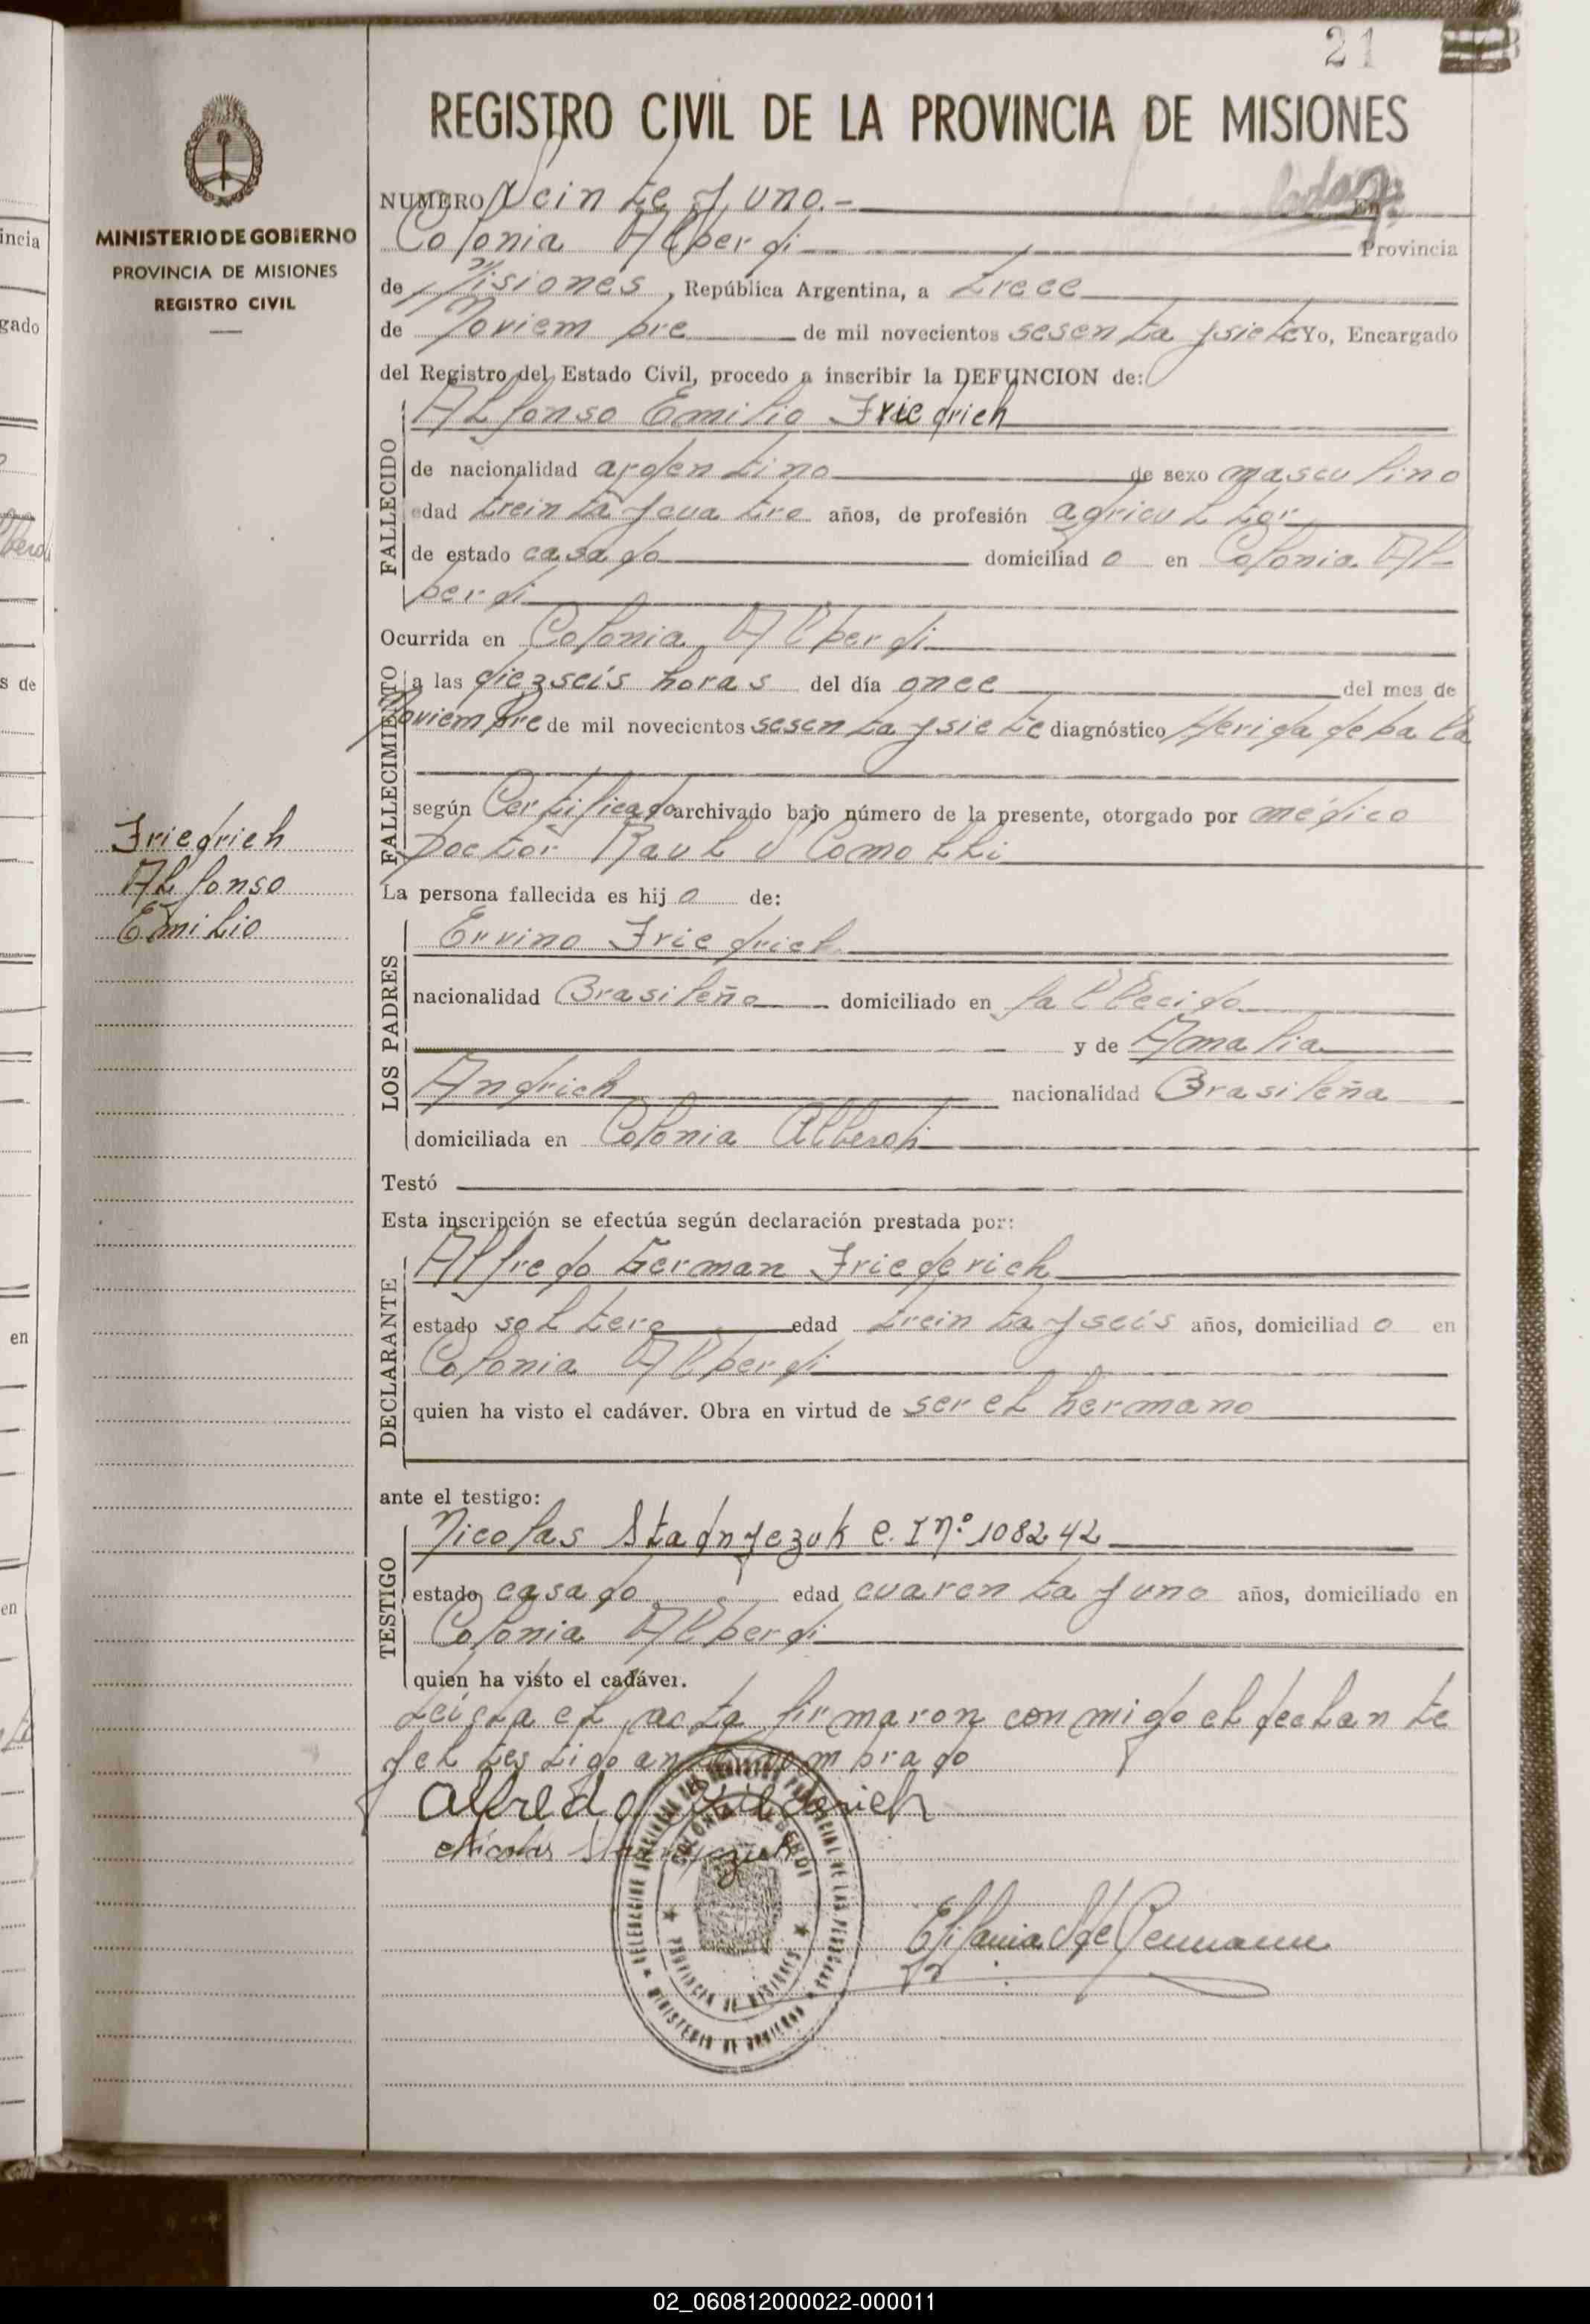 21
REGISTRO CIVIL DE LA PROVINCIA DE MISIONES
MINISTERIO DE GOBIERNO
PROVINCIA DE MISIONES
REGISTRO CIVIL
NUMERO Veinte y uno.- En
Colonia Alberdi Provincia
de Misiones, República Argentina, a trece
de Noviembre de mil novecientos sesenta y siete Yo, Encargado
del Registro del Estado Civil, procedo a inscribir la DEFUNCION de:
FALLECIDO
Alfonso Emilio Friedrich
de nacionalidad argentino de sexo masculino
edad treinta y cuatro años, de profesión agricultor
de estado casado domiciliad o en Colonia Al-
berdi
Ocurrida en Colonia Alberdi
FALLECIMIENTO
a las diezseis horas del día once del mes de
Noviembre de mil novecientos sesenta y siete diagnóstico Herida de bala
según Certificado archivado bajo número de la presente, otorgado por médico
Doctor Raul J Comolli
Friedrich
Alfonso
Emilio
La persona fallecida es hij o de:
LOS PADRES
Ervino Friedrich
nacionalidad Brasileña domiciliado en fallecido
y de Amalia
Andrich nacionalidad Brasileña
domiciliada en Colonia Alberdi
Testó
Esta inscripción se efectúa según declaración prestada por:
DECLARANTE
Alfredo German Friederich
estado soltero edad treinta y seis años, domiciliad o en
Colonia Alberdi
quien ha visto el cadáver. Obra en virtud de ser el hermano
ante el testigo:
TESTIGO
Nicolas Stadnyczuk C. I Nº 108242
estado casado edad cuarenta y uno años, domiciliado en
Colonia Alberdi
quien ha visto el cadáver.
Leista el acta firmaron conmigo el declante
y el testigo antenombrado
Alfredo Friederich
Nicolas Stadnyczuk
COLONIA ALBERDI
PROVINCIA DE MISIONES
MINISTERIO DE GOBIERNO
02_060812000022-000011